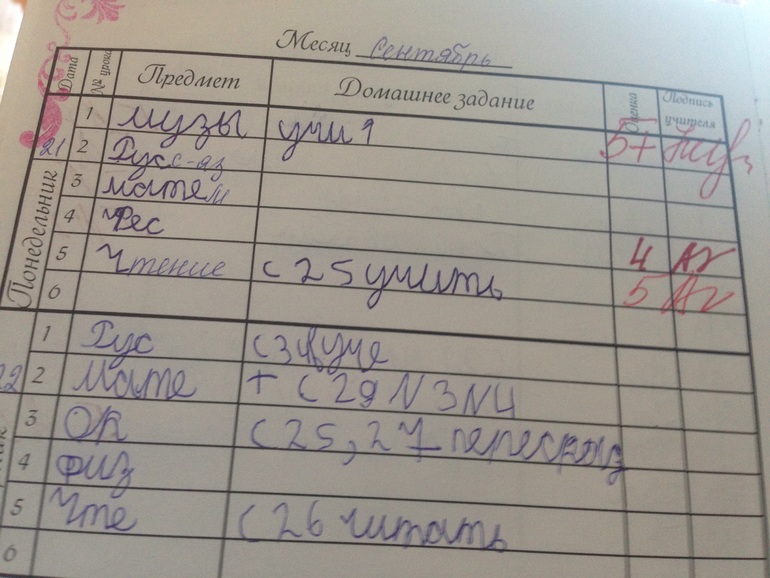 Месяц Сентябрь
Дата № урока Предмет Домашнее задание Оценка Подпись учителя
21
Понедельник
1 музы учи 5+
2 Русс-яз
3 матем
4 Чес
5 Чтение с 25 учить 4
6 5
22
1 Рус
2 мате + с 29 N 3 N 4
3 ОК с 25, 27 перескоз
4 физ
5 Чте с 26 читать
6